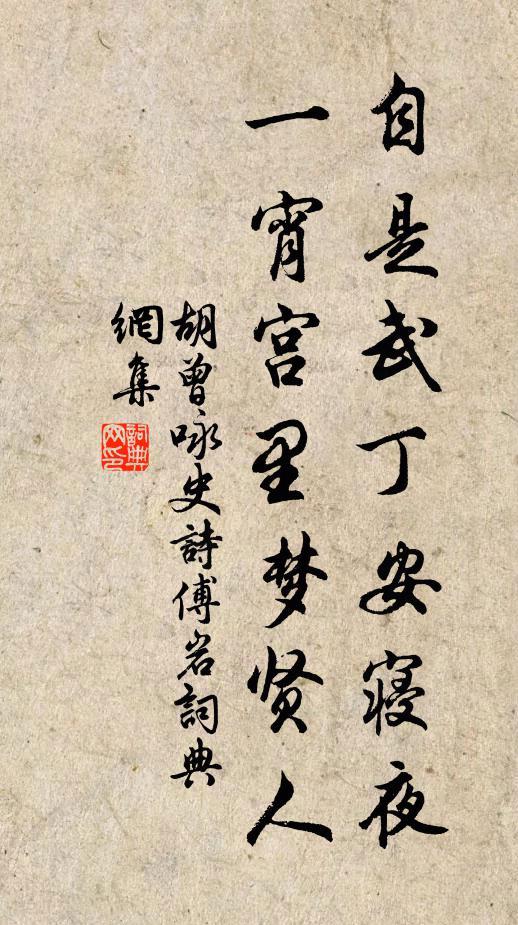 自是武丁安寝夜
一宵宫里梦贤人
胡曾咏史詩傅岩詞典
網集
詞典
网印